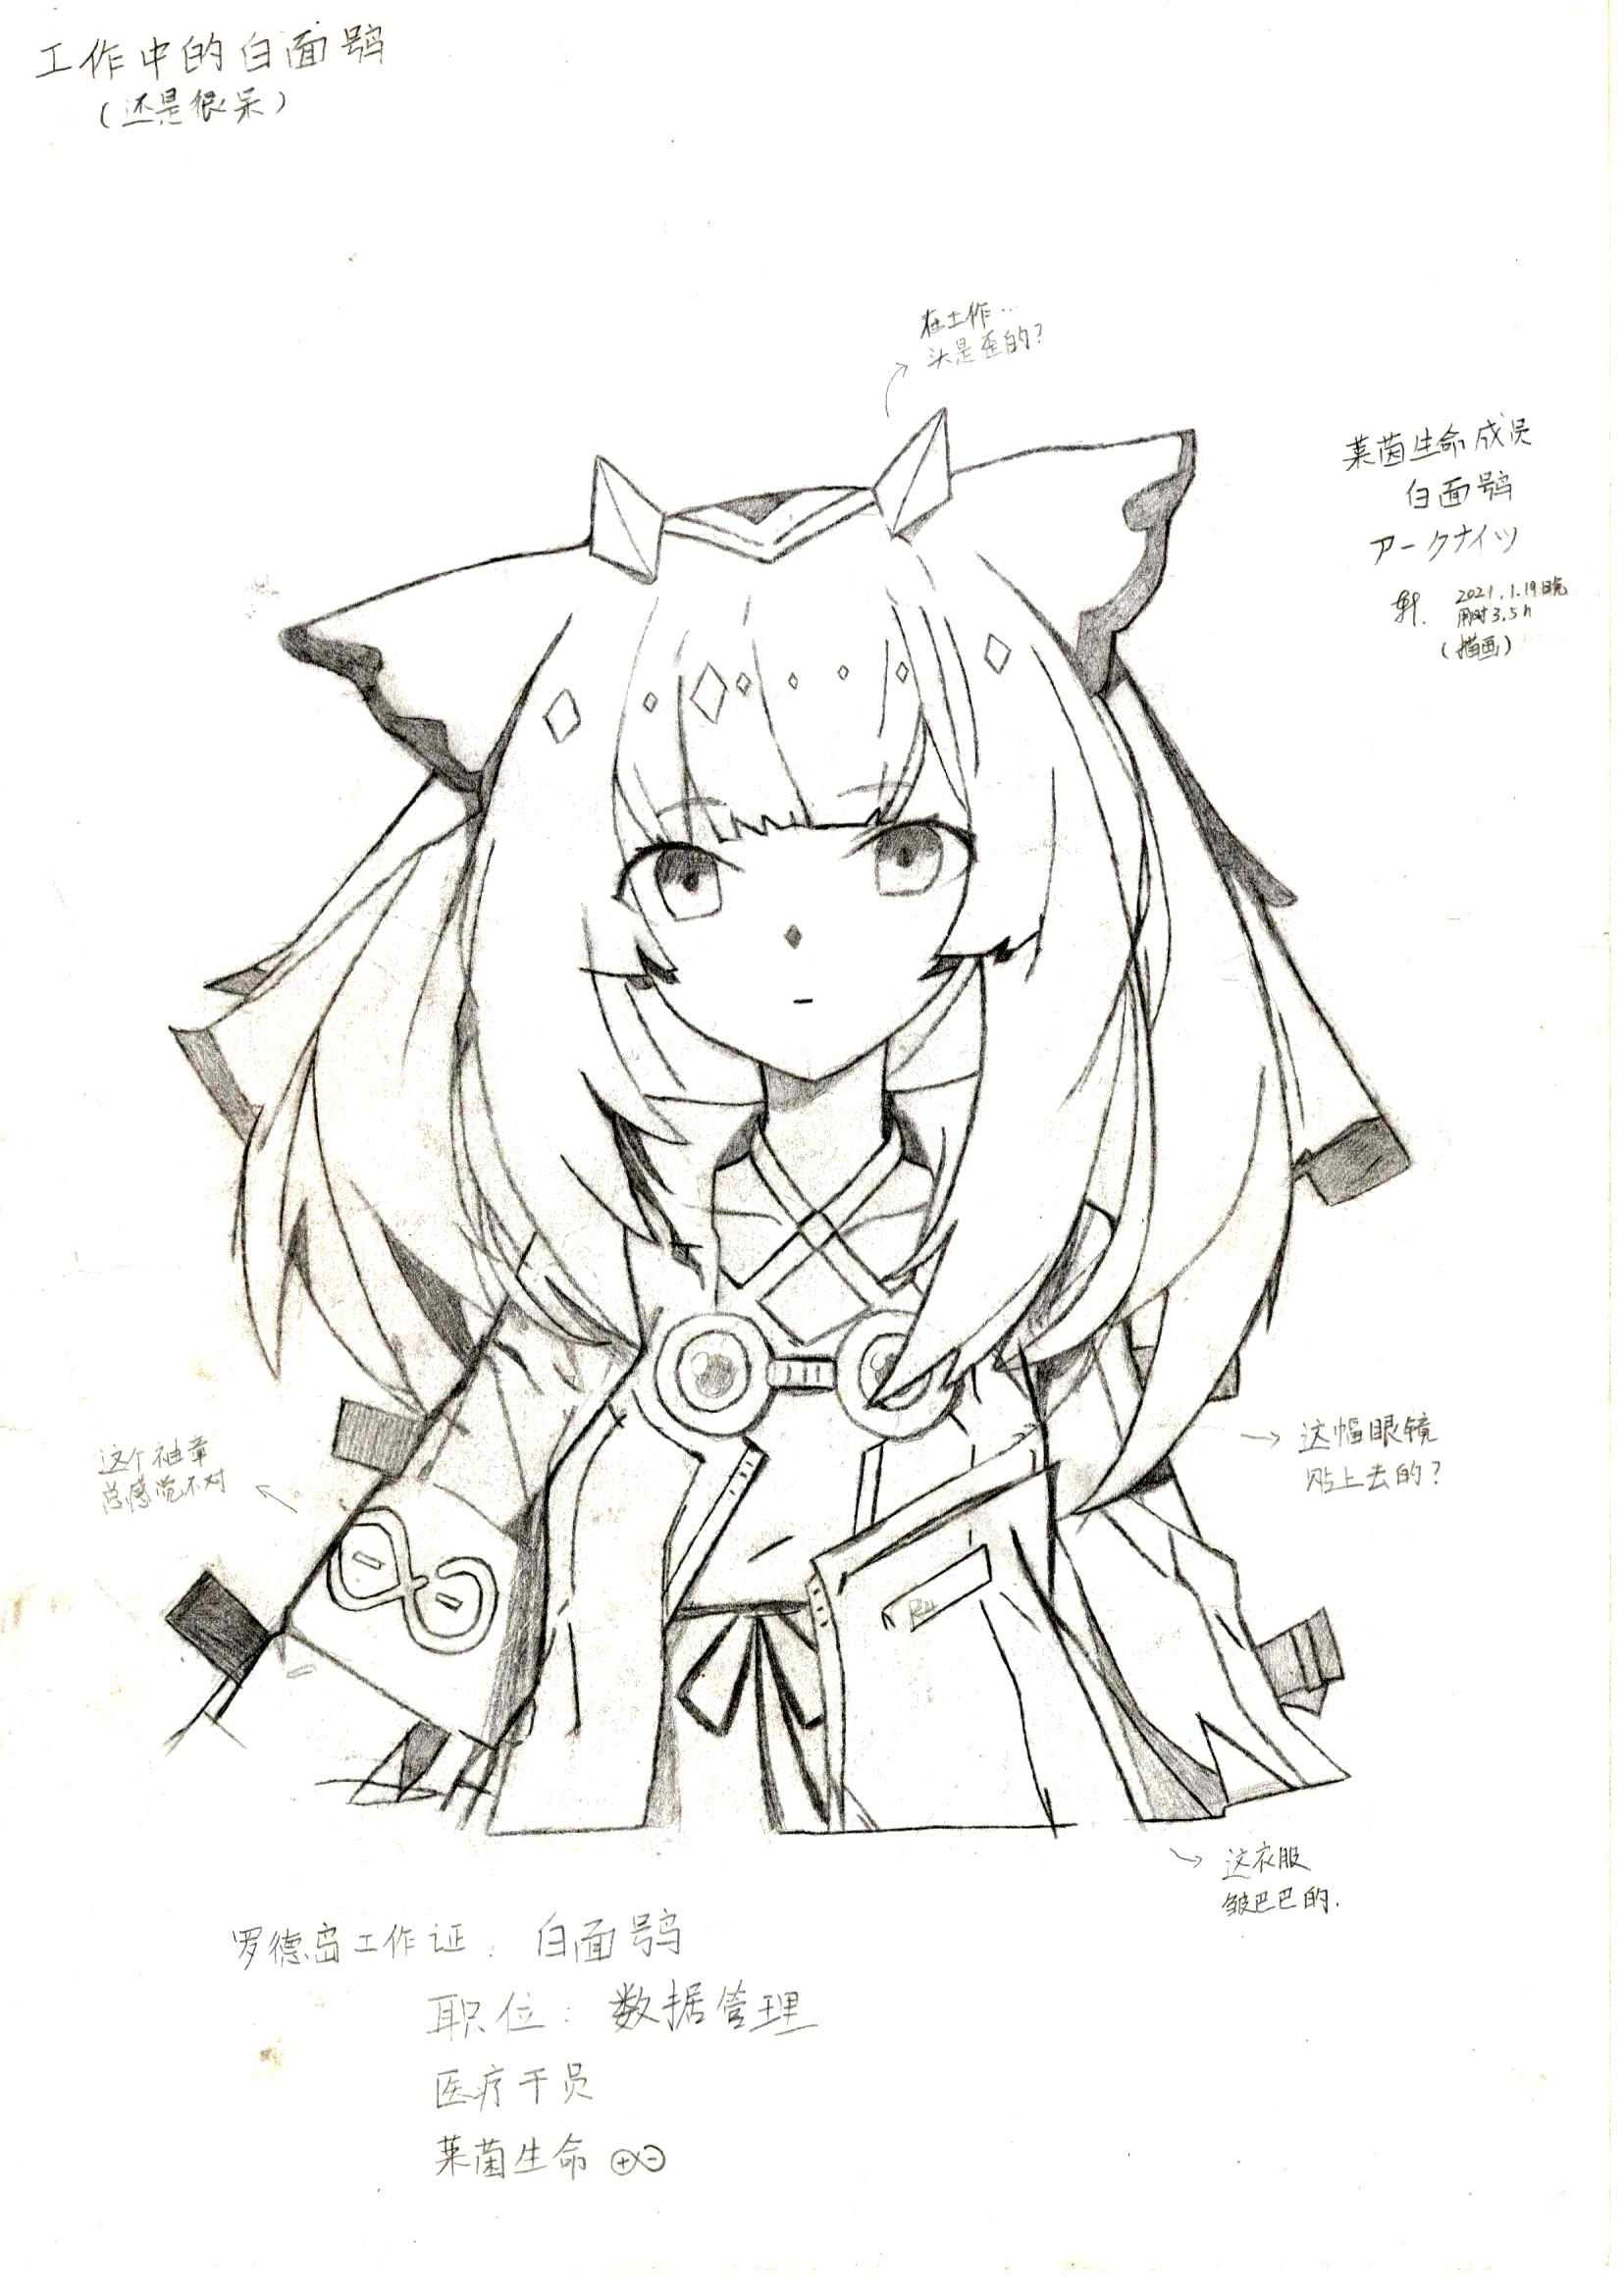 工作中的白面鸮
（还是很呆）
在工作…
头是歪的？
莱茵生命成员
白面鸮
アークナイツ
轩. 2021.1.19晚
用时3.5h
（描画）
这个袖章
总感觉不对
→ 这幅眼镜
贴上去的？
这衣服
皱巴巴的.
罗德岛工作证：白面鸮
职位：数据管理
医疗干员
莱茵生命